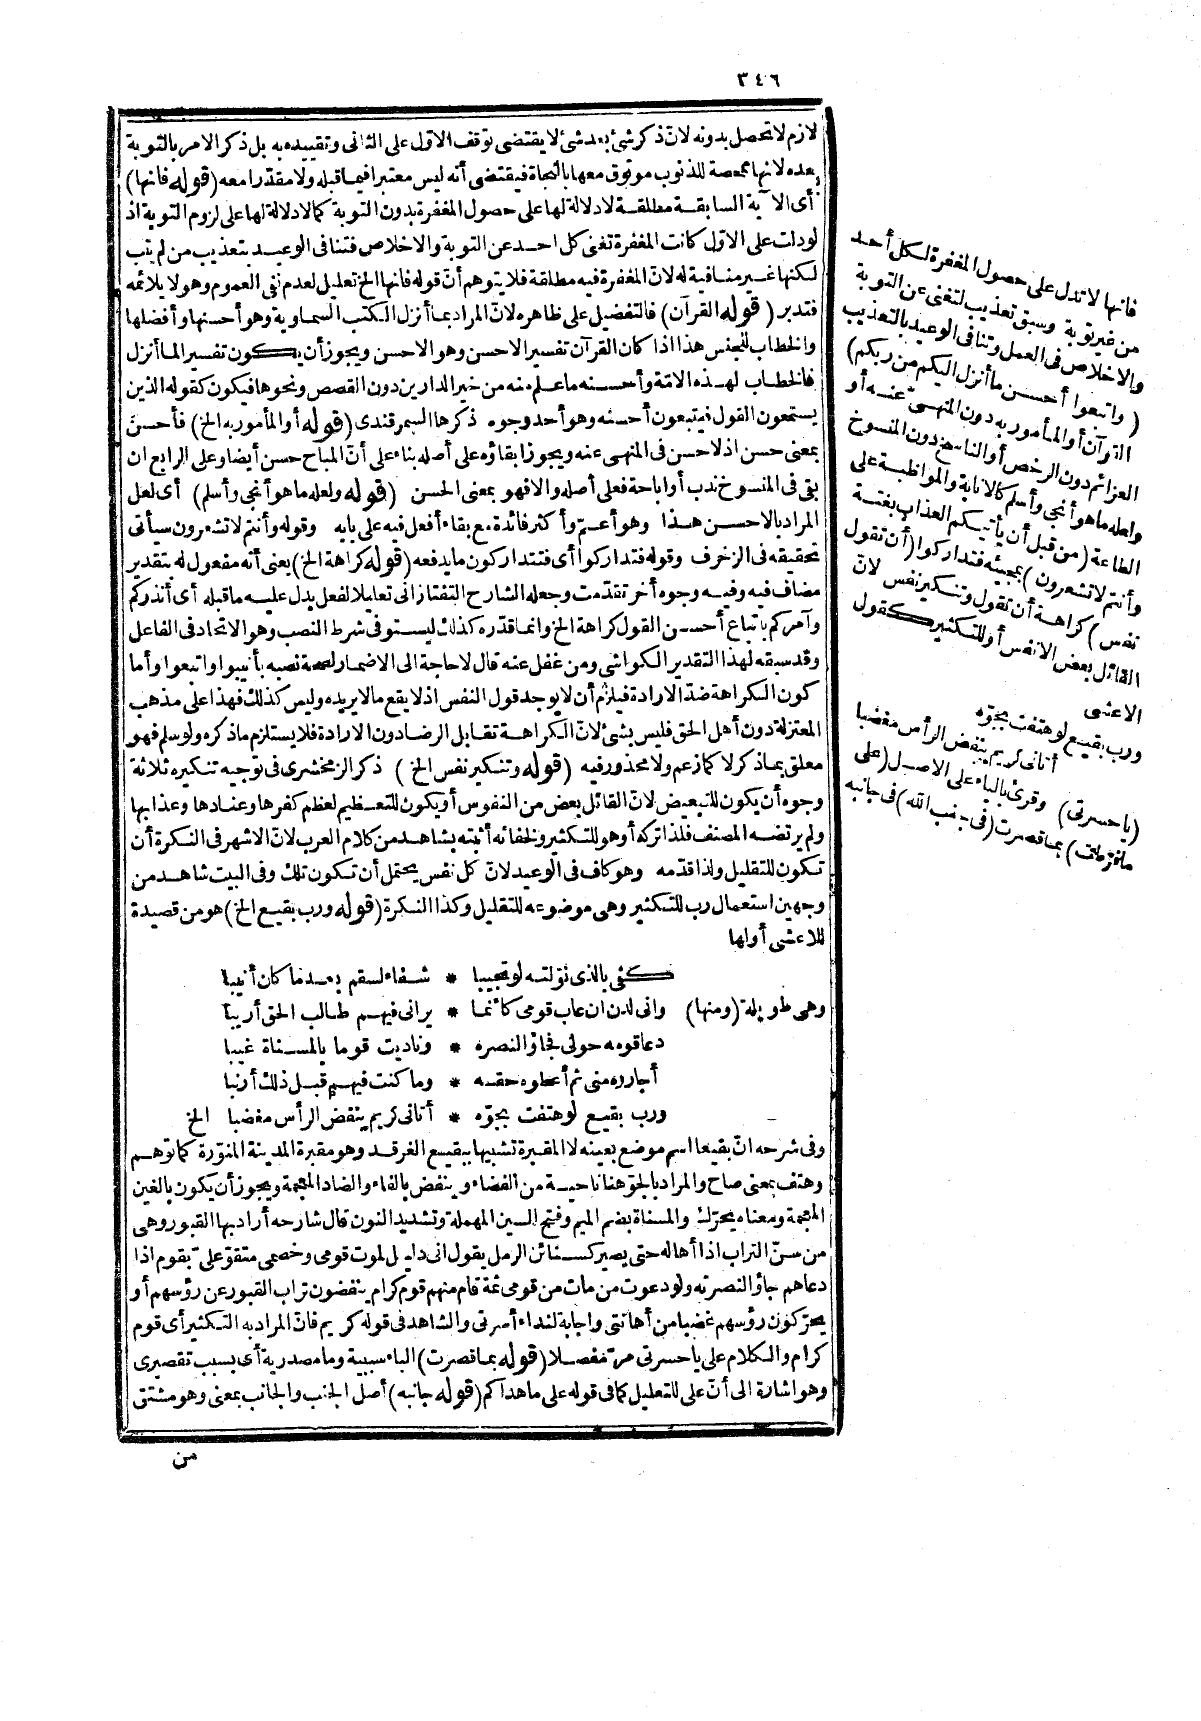 ٣٤٦
لازم لا تحصل بدونه لان ذكر شئ بعد شئ لا يقتضى توقف الاول على الثانى وتقييده به بل ذكر الامر بالتوبة
بعده لانها ممحصة للذنوب موثوق معها بالنجاة فيقتضى أنه ليس معتبرا فيما قبله ولا مقدرا معه (قوله فانها)
أى الآية السابقة مطلقة لا دلالة لها على حصول المغفرة بدون التوبة كما لا دلالة لها على لزوم التوبة اذ
لو دلت على الاول كانت المغفرة تغنى كل احد عن التوبة والاخلاص فتنافى الوعيد بتعذيب من لم يتب
لكنها غير منافية له لان المغفرة فيه مطلقة فلا يتوهم أن قوله فانها الخ تعليل لعدم نفى العموم وهو لا يلائمه
فتدبر (قوله القرآن) فالتفضيل على ظاهره لان المراد بما أنزل الكتب السماوية وهو أحسنها وأفضلها
والخطاب للجنس هذا اذا كان القرآن تفسير الاحسن وهو الاحسن ويجوز أن يكون تفسيرا لما أنزل
فالخطاب لهذه الامّة وأحسنه ما علم منه من خير الدارين دون القصص ونحوها فيكون كقوله الذين
يستمعون القول فيتبعون أحسنه وهو أحد وجوه ذكرها السمرقندى (قوله أو المأمور به الخ) فأحسن
بمعنى حسن اذ لا حسن فى المنهى عنه ويجوز ابقاؤه على أصله بناء على أنّ المباح حسن أيضا وعلى الرابع ان
بقى فى المنسوخ ندب أو اباحة فعلى أصله والا فهو بمعنى الحسن (قوله ولعله ما هو أنجى وأسلم) أى لعل
المراد بالاحسن هذا وهو أعم وأكثر فائدة مع بقاء أفعل فيه على بابه وقوله وأنتم لا تشعرون سيأتى
تحقيقه فى الزخرف وقوله فتداركوا أى فتتداركون ما يدفعه (قوله كراهة الخ) يعنى أنه مفعول له بتقدير
مضاف فيه وفيه وجوه أخر تقدّمت وجعله الشارح التفتازانى تعليلا لفعل يدل عليه ما قبله أى أنذركم
وآمركم باتباع أحسن القول كراهة الخ وانما قدره كذلك ليستوفى شرط النصب وهو الاتحاد فى الفاعل
وقد سبقه لهذا التقدير الكواشى ومن غفل عنه قال لا حاجة الى الاضمار لصحة نصبه بأنيبوا واتبعوا وأما
كون الكراهة ضدّ الارادة فيلزم أن لا يوجد قول النفس اذ لا يقع ما لا يريده وليس كذلك فهذا على مذهب
المعتزلة دون أهل الحق فليس بشئ لانّ الكراهة تقابل الرضا دون الارادة فلا يستلزم ما ذكره ولو سلم فهو
معلق بما ذكر لا كما زعم ولا محذور فيه (قوله وتنكير نفس الخ) ذكر الزمخشرى فى توجيه تنكيره ثلاثة
وجوه أن يكون للتبعيض لانّ القائل بعض من النفوس أو يكون للتعظيم لعظم كفرها وعنادها وعذابها
ولم يرتضه المصنف فلذا تركه أو هو للتكثير ولخفائه أثبته بشاهد من كلام العرب لانّ الاشهر فى النكرة أن
تكون للتقليل ولذا قدّمه وهو كاف فى الوعيد لانّ كل نفس يحتمل أن تكون تلك وفى البيت شاهد من
وجهين استعمال رب للتكثير وهى موضوعه للتقليل وكذا النكرة (قوله ورب بقيع الخ) هو من قصيدة
للاعشى أولها
كفى بالذى تولته لو تجيبا * شفاء لسقم بعد ما كان أنيبا
وهى طويلة (ومنها) وانى لدن ان عاب قومى كأنما * يرانى فيهم طالب الحق أريبا
دعا قومه حولى فجاؤا لنصره * وناديت قوما بالمسناة غيبا
أجاروه منى ثم أعطوه حقه * وما كنت فيهم قبل ذلك أرنبا
ورب بقيع لو هتفت بجوّه * أتانى كريم ينفض الرأس مغضبا الخ
وفى شرحه انّ بقيعا اسم موضع بعينه لا المقبرة تشبيها ببقيع الغرقد وهو مقبرة المدينة المنوّرة كما توهم
وهتف بمعنى صاح والمراد بالجوّ هنا ناحية من الفضاء وينفض بالفاء والضاد المعجمة ويجوز أن يكون بالغين
المعجمة ومعناه يحرّك والمسناة بضم الميم وفتح السين المهملة وتشديد النون قال شارحه أراد بها القبور وهى
من سنّ التراب اذا أهاله حتى يصير كسنائن الرمل يقول انى ذليل لموت قومى وخصمى متقوّ علىّ بقوم اذا
دعاهم جاؤا لنصرته ولو دعوت من مات من قومى ثمة قام منهم قوم كرام ينفضون تراب القبور عن رؤسهم أو
يحرّكون رؤسهم غضبا من أهانتى واجابة لنداء أسرتى والشاهد فى قوله كريم فانّ المراد به التكثير أى قوم
كرام والكلام على يا حسرتى مرّ مفصلا (قوله بما قصرت) الباء سببية وما مصدرية أى بسبب تقصيرى
وهو اشارة الى أنّ على للتعليل كما فى قوله على ما هداكم (قوله جانبه) أصل الجنب والجانب بمعنى وهو مشتق
من
فانها لا تدل على حصول المغفرة لكل أحد
من غير توبة وسبق تعذيب لتغنى عن التوبة
والاخلاص فى العمل وتنافى الوعيد بالتعذيب
(واتبعوا أحسن ما أنزل اليكم من ربكم)
القرآن أو المأمور به دون المنهى عنه أو
العزائم دون الرخص أو الناسخ دون المنسوخ
ولعله ما هو أنجى وأسلم كالانابة والمواظبة على
الطاعة (من قبل أن يأتيكم العذاب بغتة
وأنتم لا تشعرون) بمجيئه فتداركوا (أن تقول
نفس) كراهة أن تقول وتنكير نفس لانّ
القائل بعض الانفس أو للتكثير كقول
الاعشى
ورب بقيع لو هتفت بجوّه
أتانى كريم ينفض الرأس مغضبا
(يا حسرتى) وقرئ بالياء على الاصل (على
ما فرّطت) بما قصرت (فى جنب الله) فى جانبه